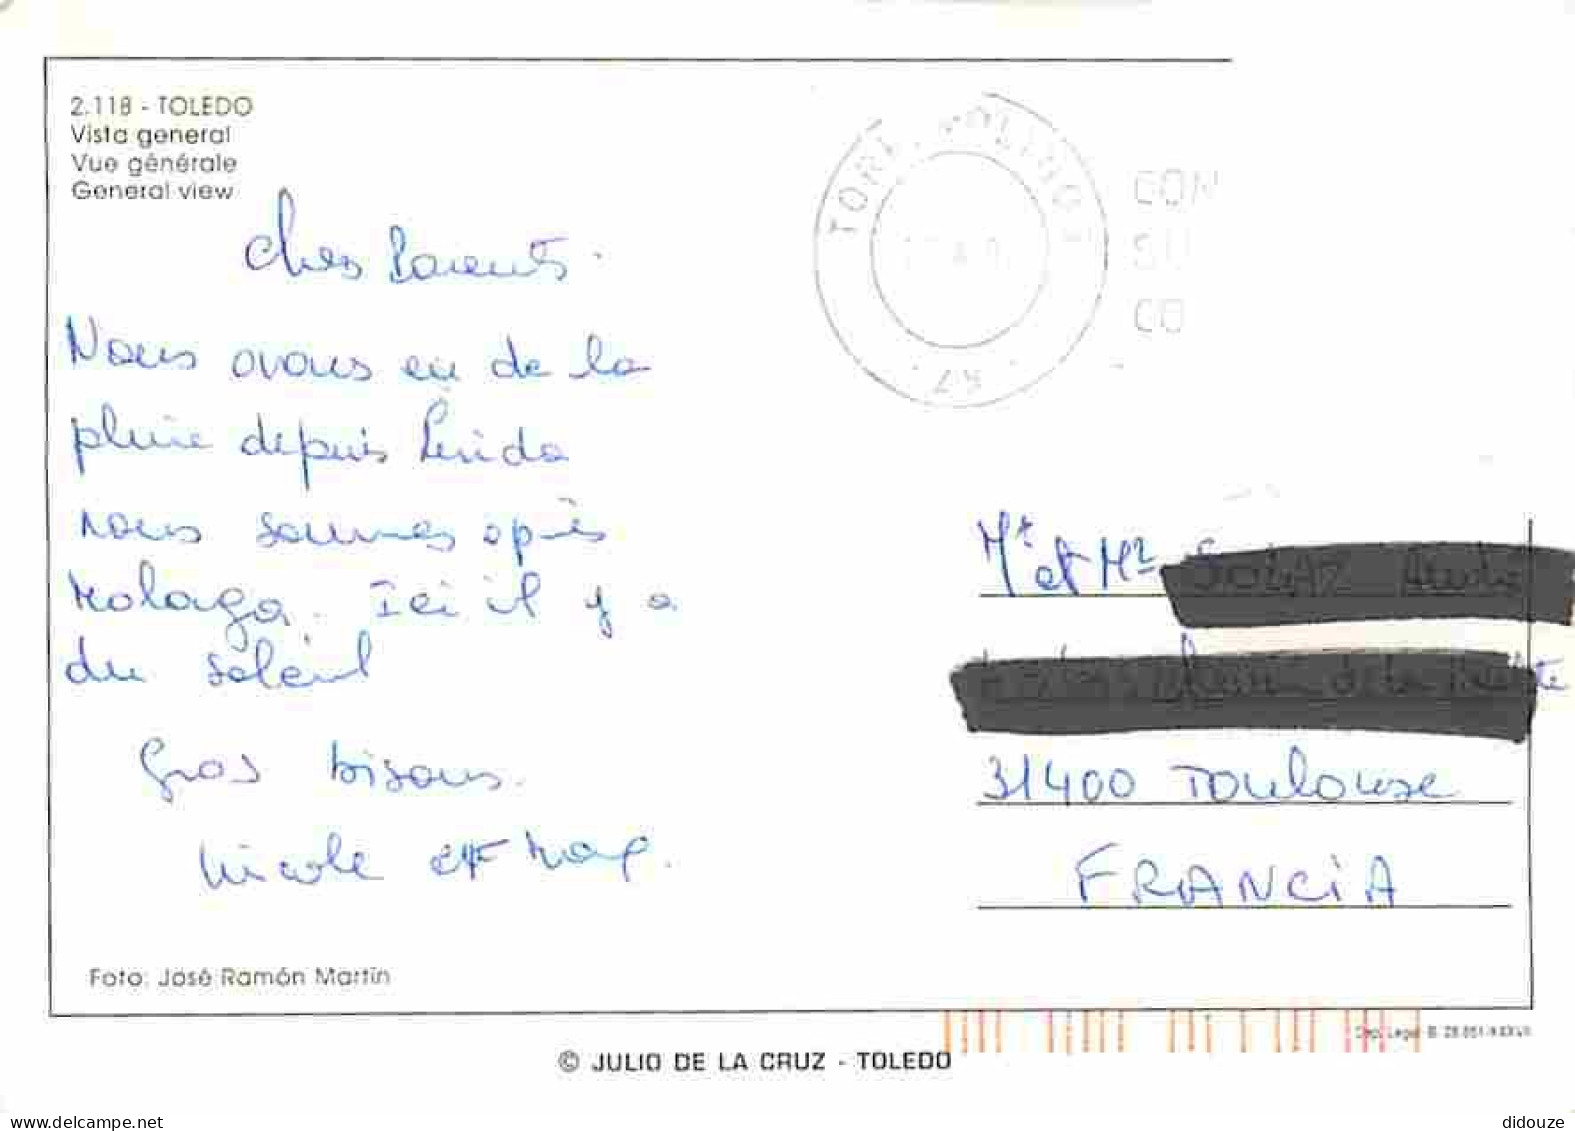 2.118 - TOLEDO
Vista general
Vue générale
General view
Chers Parents.
Nous avons eu de la
pluie depuis Lerida
nous sommes après
Malaga. Ici il y a
du soleil
Gros bisous.
Nicole et
Foto: José Ramón Martín
© JULIO DE LA CRUZ - TOLEDO
TORREMOLINOS
CON
Mr et Mme
31400 Toulouse
FRANCiA
Dep. Legal B.
delcampe.net
didouze